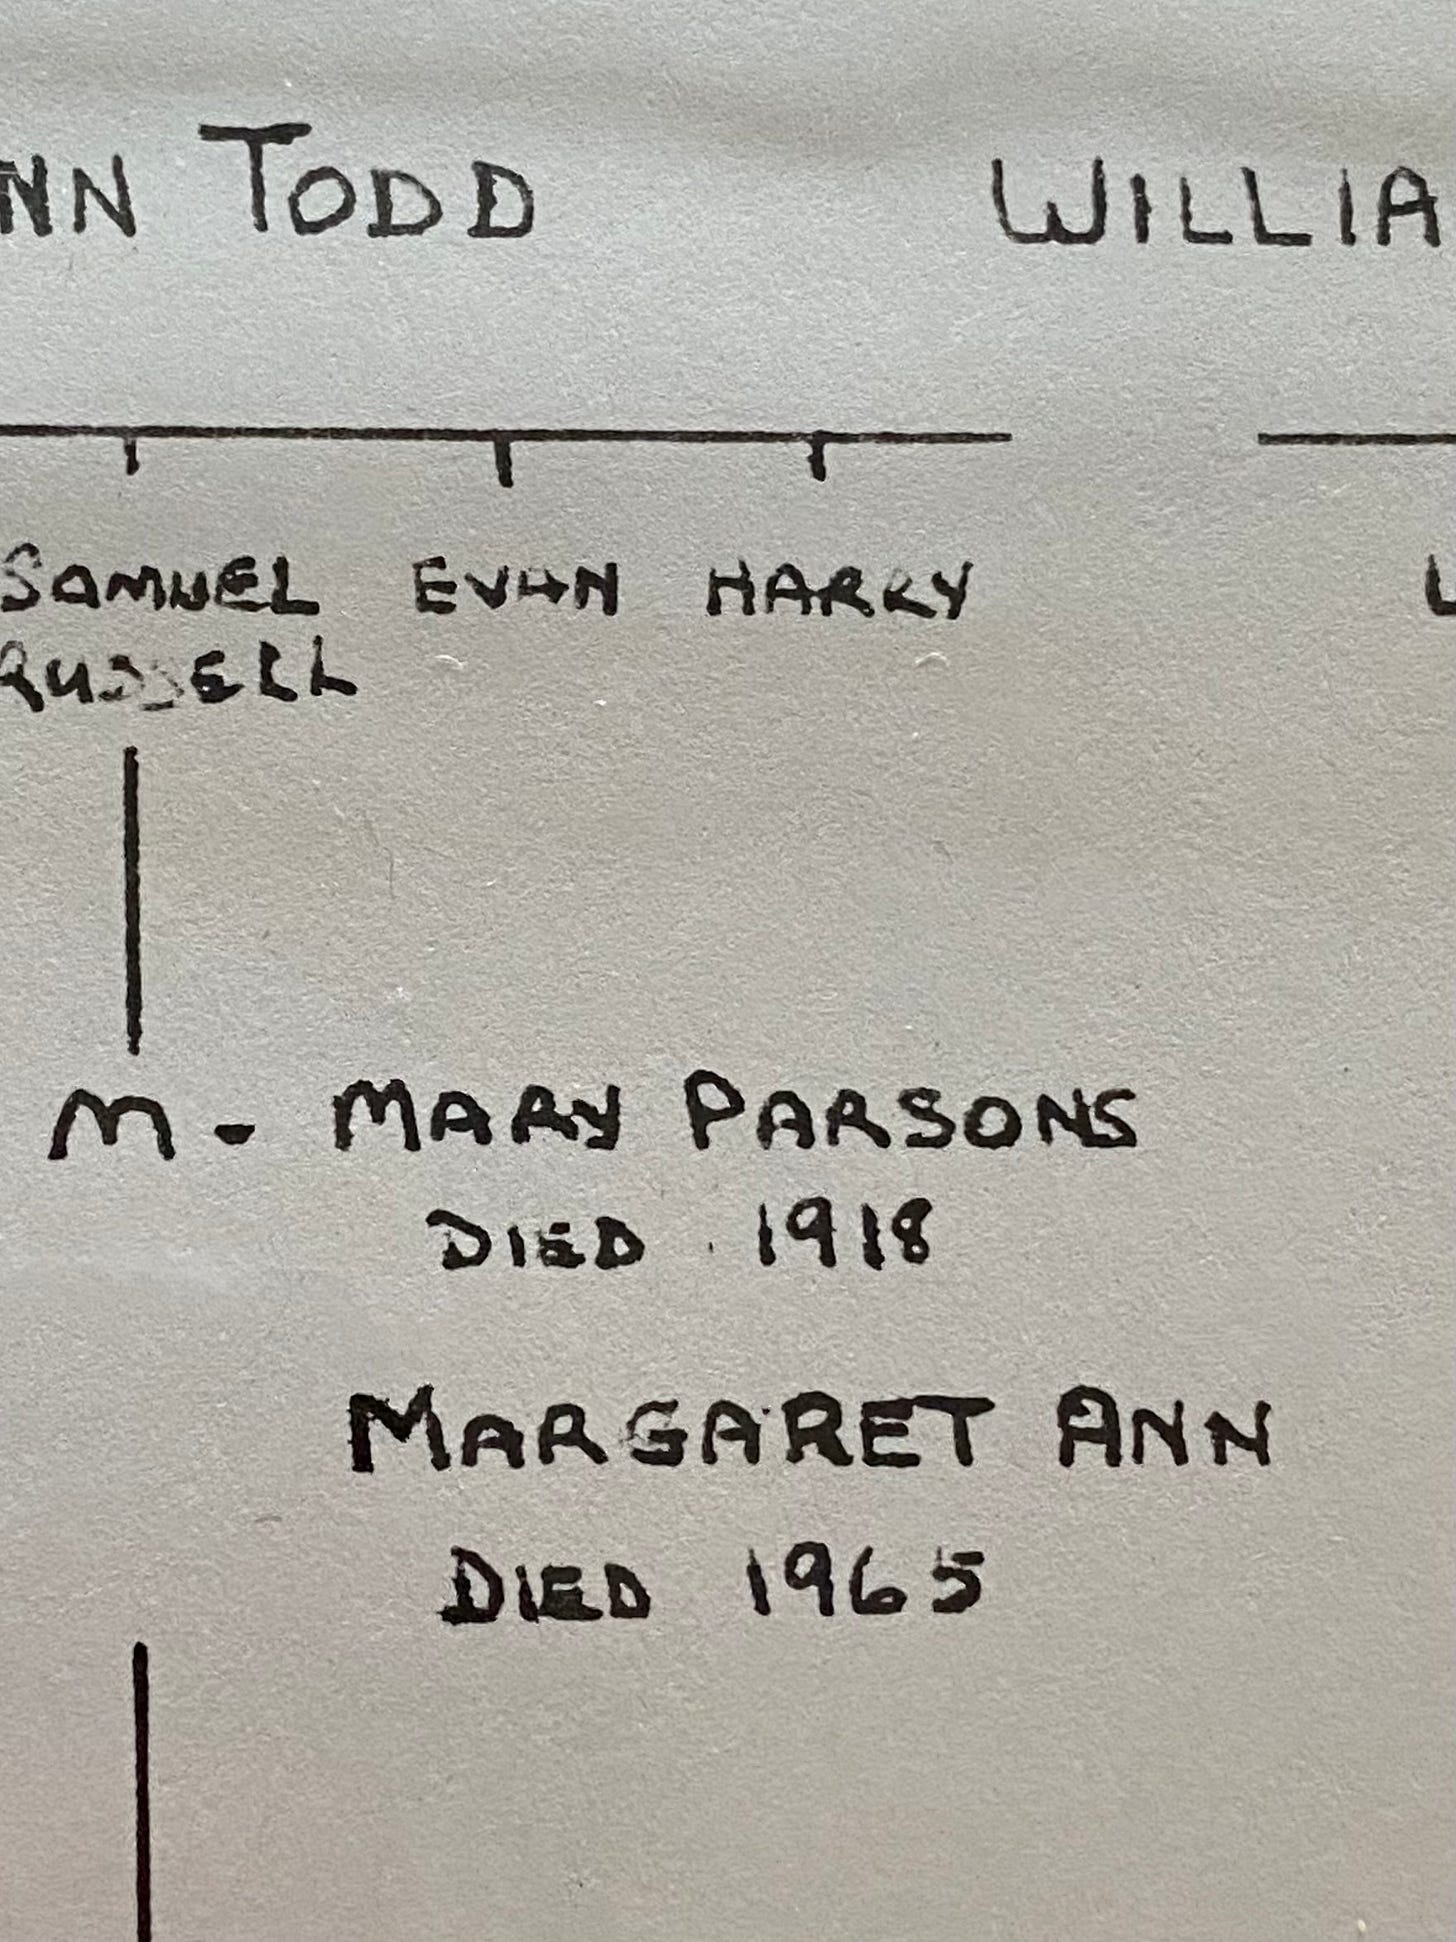 NN TODD WILLIA
SAMUEL EVAN HARRY
RUSSELL
M - MARY PARSONS
DIED 1918
MARGARET ANN
DIED 1965